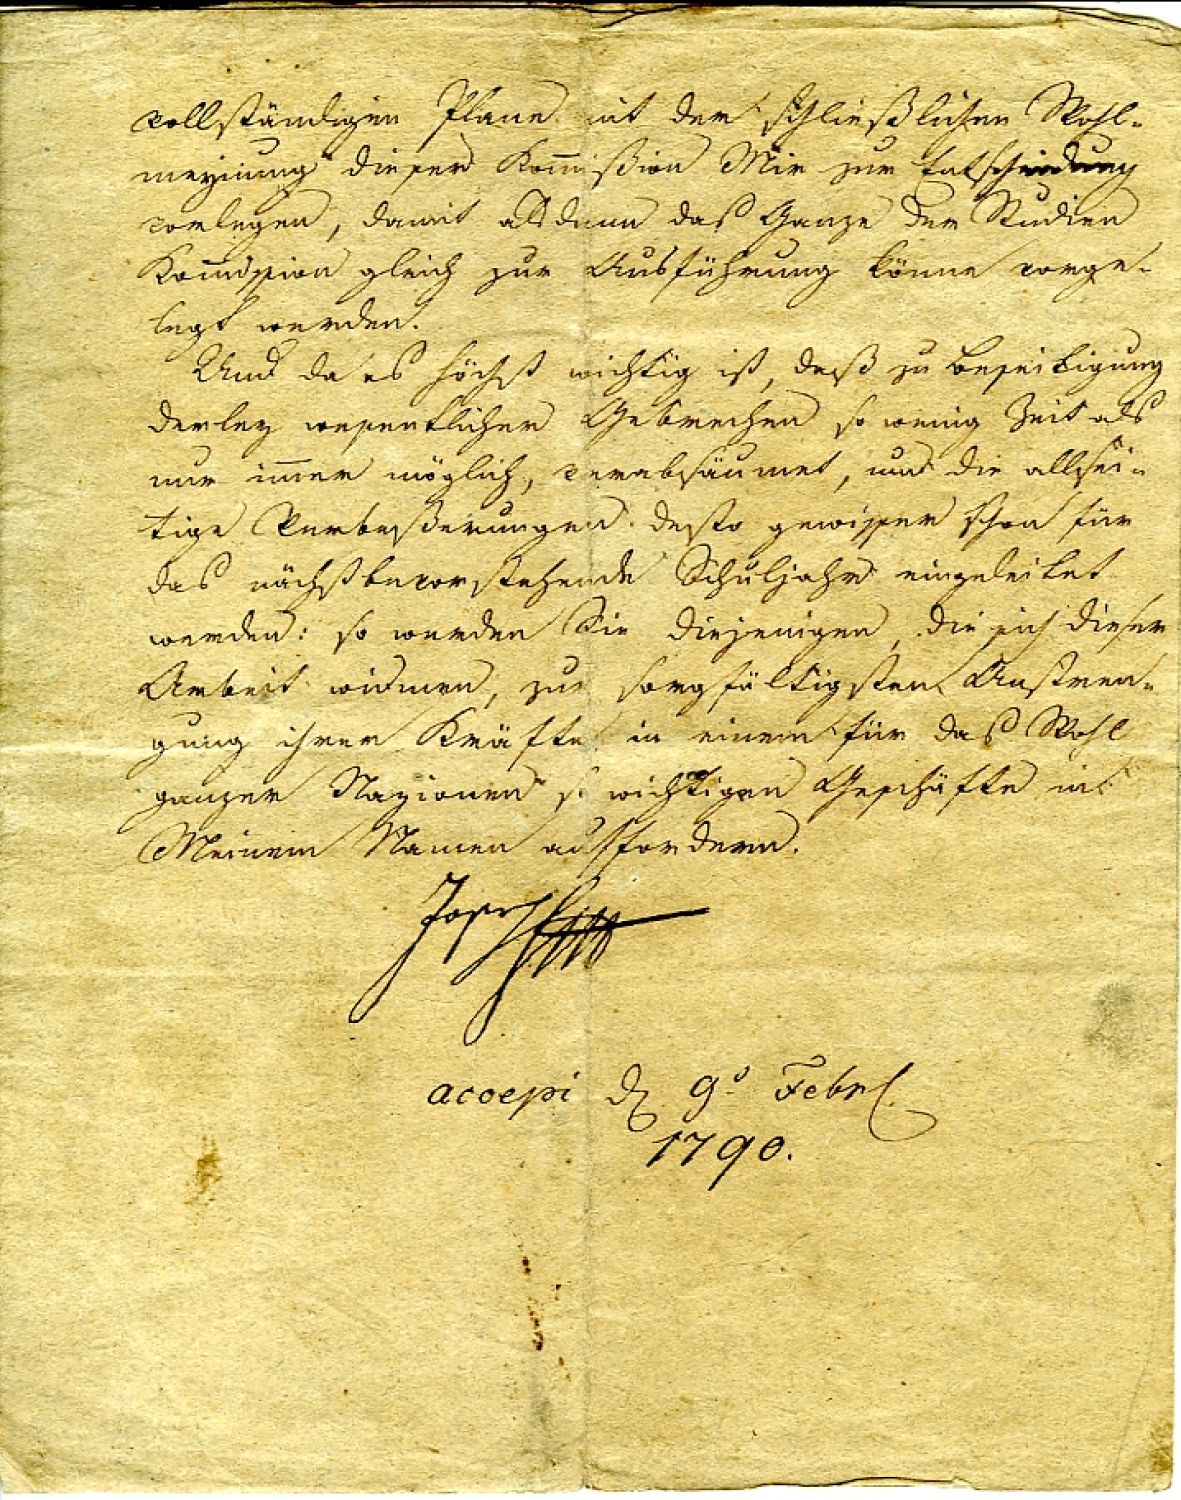 vollständigen Plane mit der schließlichen Wohl-
meynung dieser Kommißion Mir zur Entscheidung
vorlegen, damit alsdann das Ganze der Studien
Kommission gleich zur Ausführung könne vorge-
legt werden.
Und da es höchst wichtig ist, daß zu Beseitigung
derley wesentlicher Gebrechen so wenig Zeit als
nur immer möglich, verabsäumet, und die allsei-
tige Verbeßerungen desto gewisser schon für
das nächstbevorstehende Schuljahr eingeleitet
werden: so werden Sie diejenigen, die sich dieser
Arbeit widmen, zur sorgfältigsten Anstren-
gung ihrer Kräfte in einem für das Wohl
ganzer Nazionen so wichtigen Geschäfte in
Meinem Namen auffordern.
Joseph
accepi d 9° Febr.
1790.